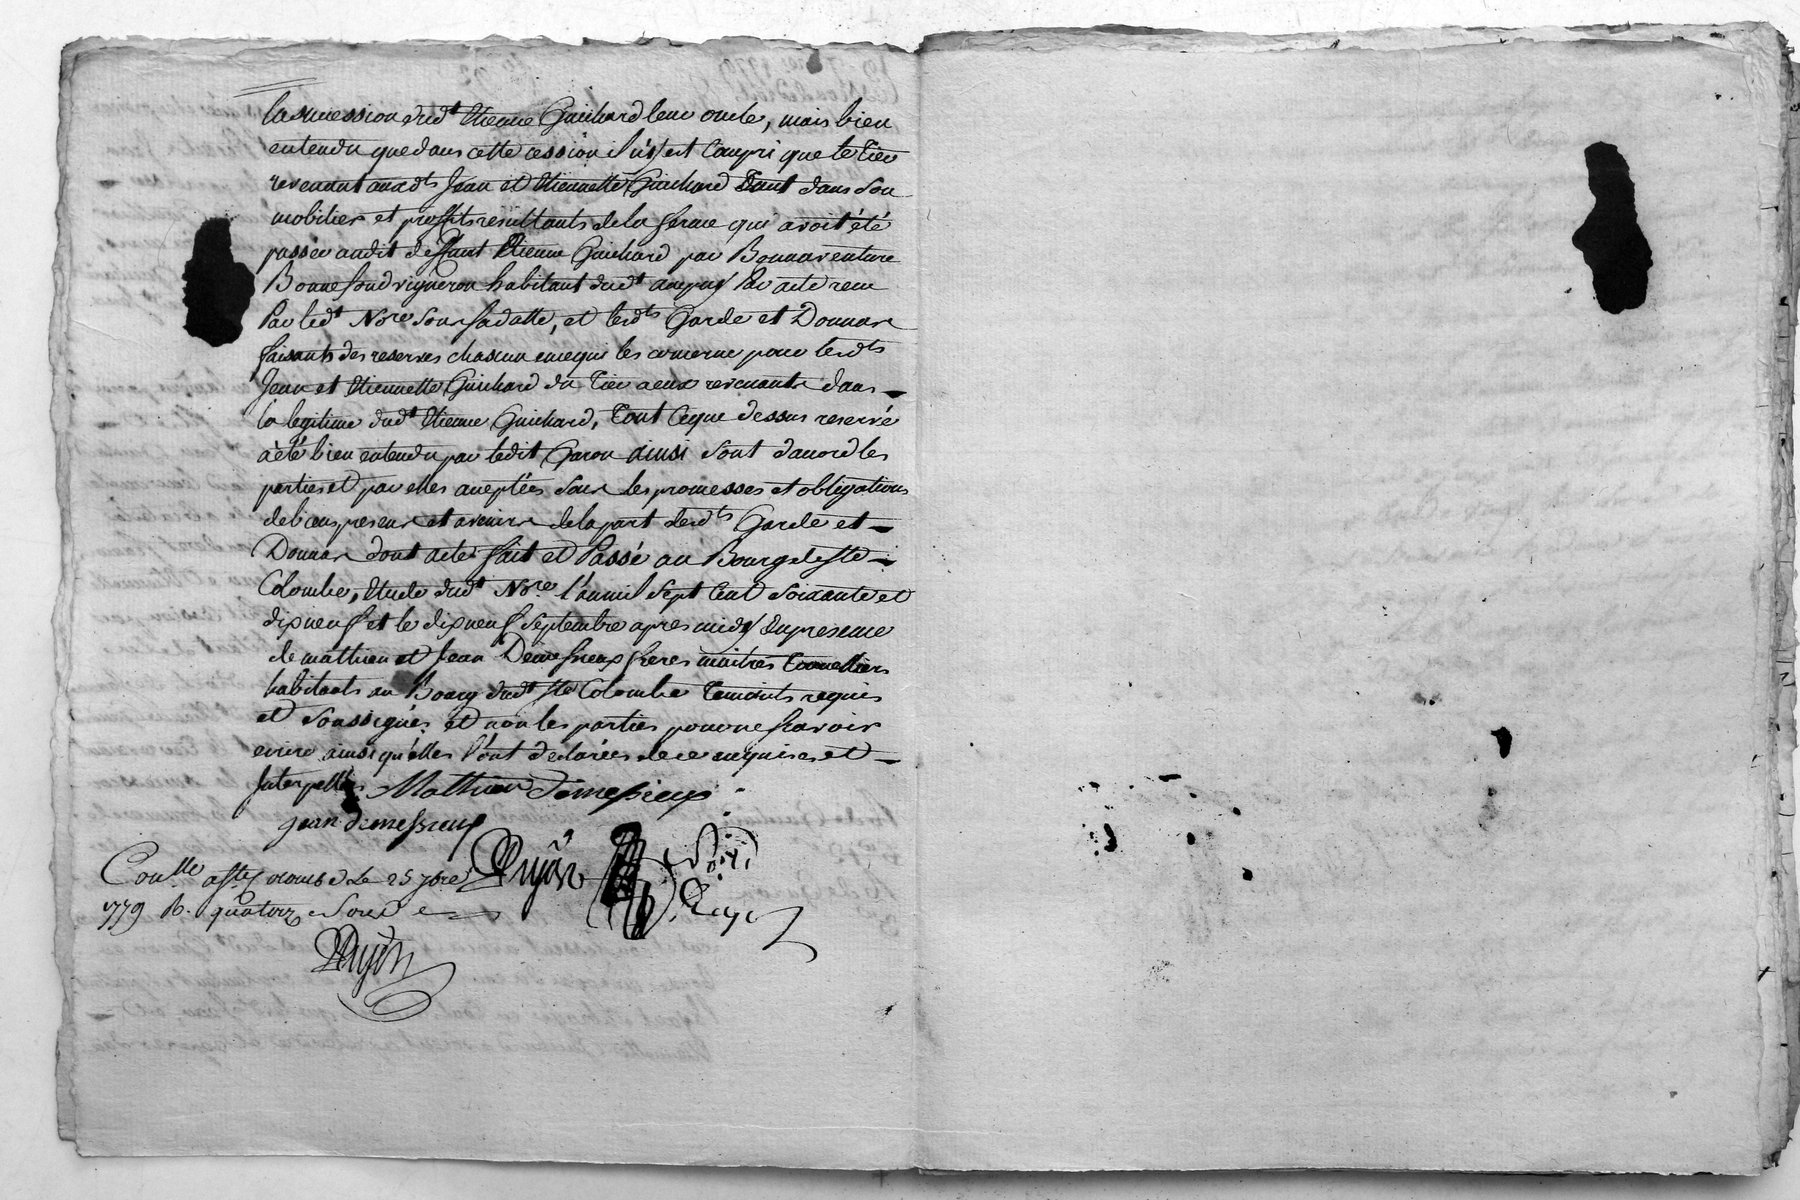 la succession dud.t Etienne Guichard leur oncle, mais bien
entendu que dans cette cession il n'y est Compri que le tier
revenant auxd.ts Jean et Etiennette Guichard tant dans son
mobilier et proffits resultants de la ferme qui avoit été
passée audit deffunt Etienne Guichard par Bonnaventure
Bonnefond vigneron habitant dud.t ampuy Par acte recu
Par led.t No.re Sour sa datte, et lesd.ts Garde et Donnar
faisants des reserves chascun en ce qui les concerne pour lesd.ts
Jean et Etiennette Guichard du tier a eux revenants dans
la legitime dud.t Etienne Guichard, tout Ceque dessus reservé
a été bien entendu par ledit Garon ainsi sont d'accord les
parties et par elles acceptées sour les promesses et obligations
de biens presens et avenirs de la part desd.ts Garde et
Donnar dont acte fait et Passé au Bourg de Ste
Colombe, Etude dud.t No.re l'an mil sept Cent soixante et
dix neuf et le dix neuf septembre apres midy En presence
de mathieu et Jean Demesieux freres maitres tonnelliers
habitants au Bourg dud.t Ste Colombe temoints requis
et soussignés et non les parties pour ne scavoir
ecrire ainsi qu'elles l'ont declarées de ce enquises et
Interpellés Mathieu Demesieux
jean demessieux
Con.lle a ste colombe le 25 7bre
1779 R. quatorze sous